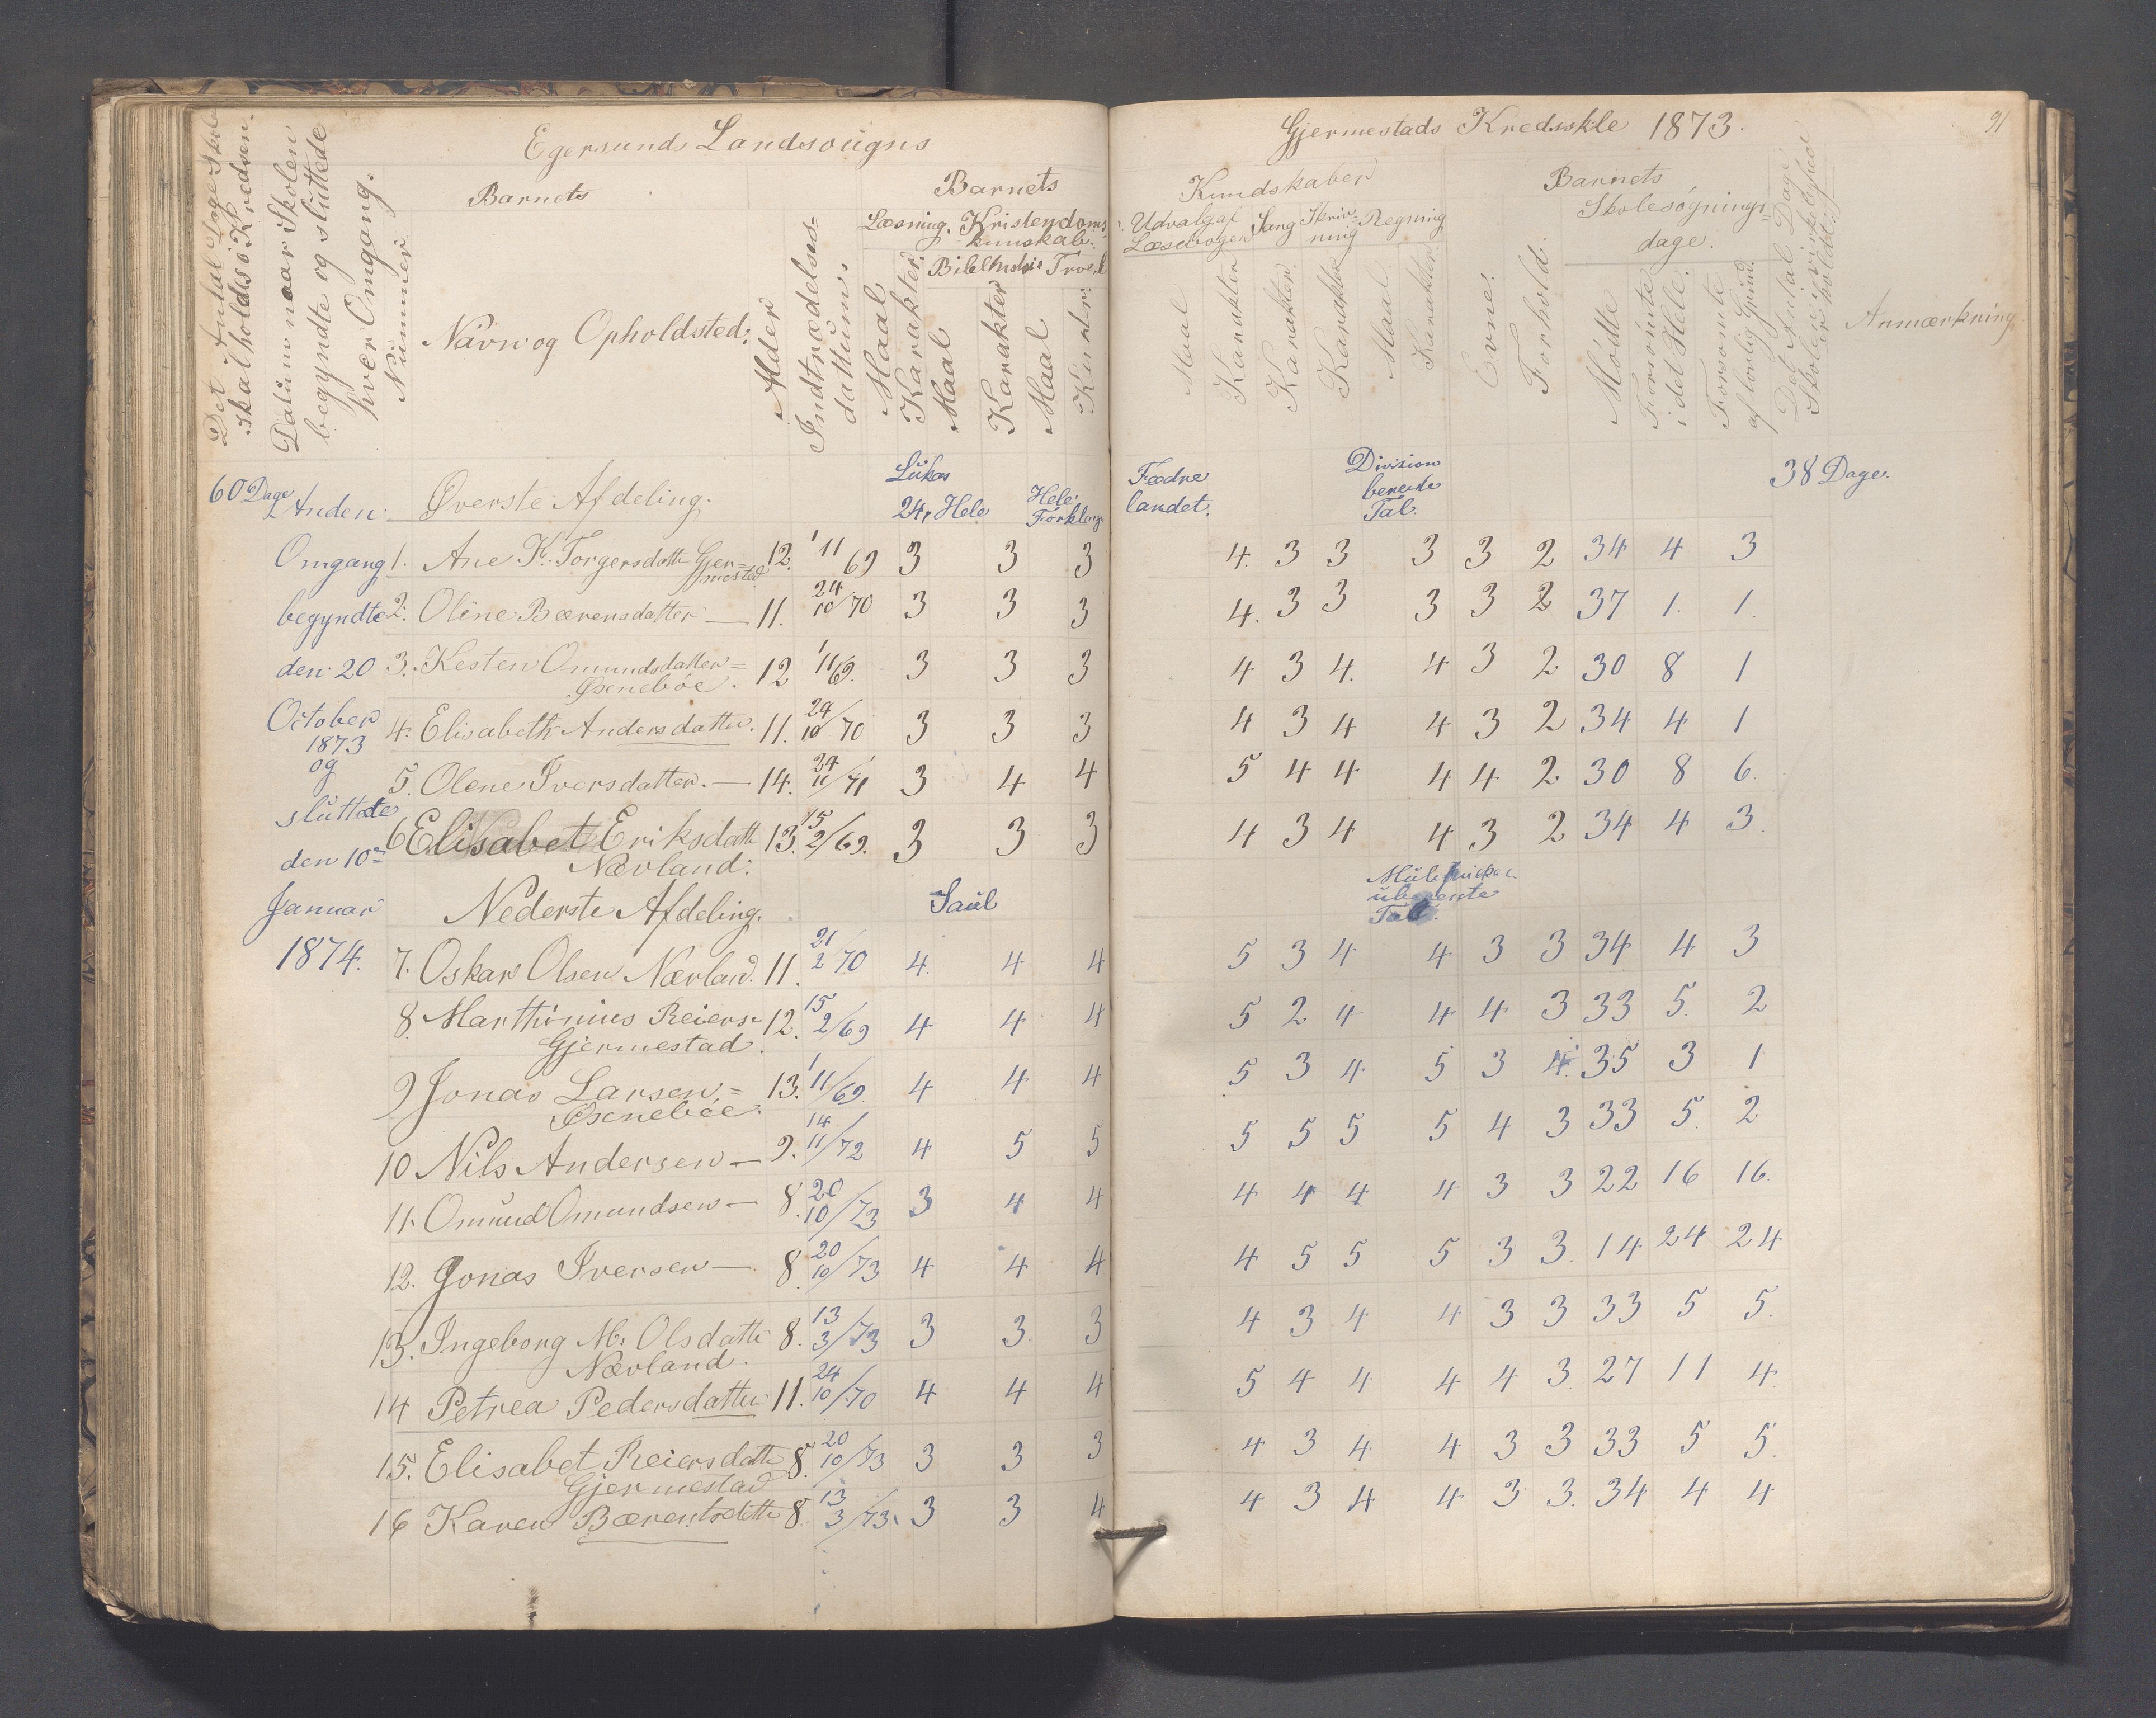 Egersunds Landsougns
Gjermestads Kredsskle 1873.
91
Det Antal Dage Skole
Skal holdes i Kredsen.
Datum naar Skolen
begyndte og sluttede
hver Omgang.
Nummer
Barnets
Navn og Opholdsted.
Alder
Indtrædelses=
dattum.
Barnets
Læsning. Kristendoms
kunskab.
Bibelhistorie Troesl
Maal
Karakter.
Maal
Karakter
Maal
Karakter
Kundskaber
Udvalg af Læsebogen Sang Skriv=ning Regning
Maal
Karakter
Karakter.
Karakter
Maal.
Karakter.
Evne.
Forhold.
Barnets
Skolesøgnings=
dage.
Mødte
Forsømte
i det Hele.
Forsømte
af lovlig Grund.
Det Antal Dage
Skolen i virkelighed
er holdt.
Anmærkning
60 Dage
Anden
Omgang
begyndte
den 20
October
1873
og
sluttede
den 10de
Januar
1874.
Øverste Afdeling. Lukas 24, Hele Hele Forklarg Fædrelandet. Division benevnte Tal. 38 Dage.
1. Ane K. Torgersdatter Gjer=mestad 12. 1/11 69 3 3 3 4. 3 3 3 3 2 34 4 3
2. Oline Bærensdatter — 11. 24/10 70 3 3 3 4. 3 3 3 3 2 37 1. 1.
3. Kesten Omundsdatter= Øsenebøe. 12 1/11 69. 3 3 3 4 3 4. 4 3 2 30 8 1
4. Elisabeth Andersdatter. 11. 24/10 70 3 3 3 4 3 4 4 3 2 34 4 1
5. Olene Iversdatter. — 14. 24/11 71 3 4 4 5 4 4 4 4 2. 30 8 6.
6 Elisabet Eriksdatt Nærland. 13. 15/2 69. 3 3 3 4 3 4 4 3 2 34 4 3.
Nederste Afdeling. Saul
7. Oskar Olsen Nærland. 11. 21/2 70 4. 4 4 5 3 4 4 3 3 34 4 3
8. Marthinius Reiers= Gjermestad. 12. 15/2 69 4 4 4 5 2 4 4 4 3 33 5. 2
9 Jonas Larsen.= Øsenebøe. 13. 1/11 69. 4 4 4 5 3 4 5 3 4. 35 3 1
10 Nils Andersen — 9. 14/11 72 4 5 5 5 5 5 5 4 3 33 5. 2
11. Omund Omundsen — 8. 20/10 73 3 4 4 4 4 4 4 3 3 22 16 16.
12. Jonas Iversen — 8. 20/10 73 4 4 4 4 5 5 5 3 3. 14 24 24
13. Ingeborg M. Olsdatt Nærland. 8. 13/3 73 3 3. 3 4 3 4 4 3 3 33 5 5.
14 Petrea Pedersdatter 11. 24/10 70 4 4 4 5 4 4 4 4 3. 27 11 4.
15. Elisabet Reiersdatt Gjermestad 8. 20/10 73 3 3 3 4 3 4 4 3 3 33 5 5.
16 Karen Bærentsdatt 8. 13/3 73. 3 3 4 4 3 4 4 3 3. 34 4 4